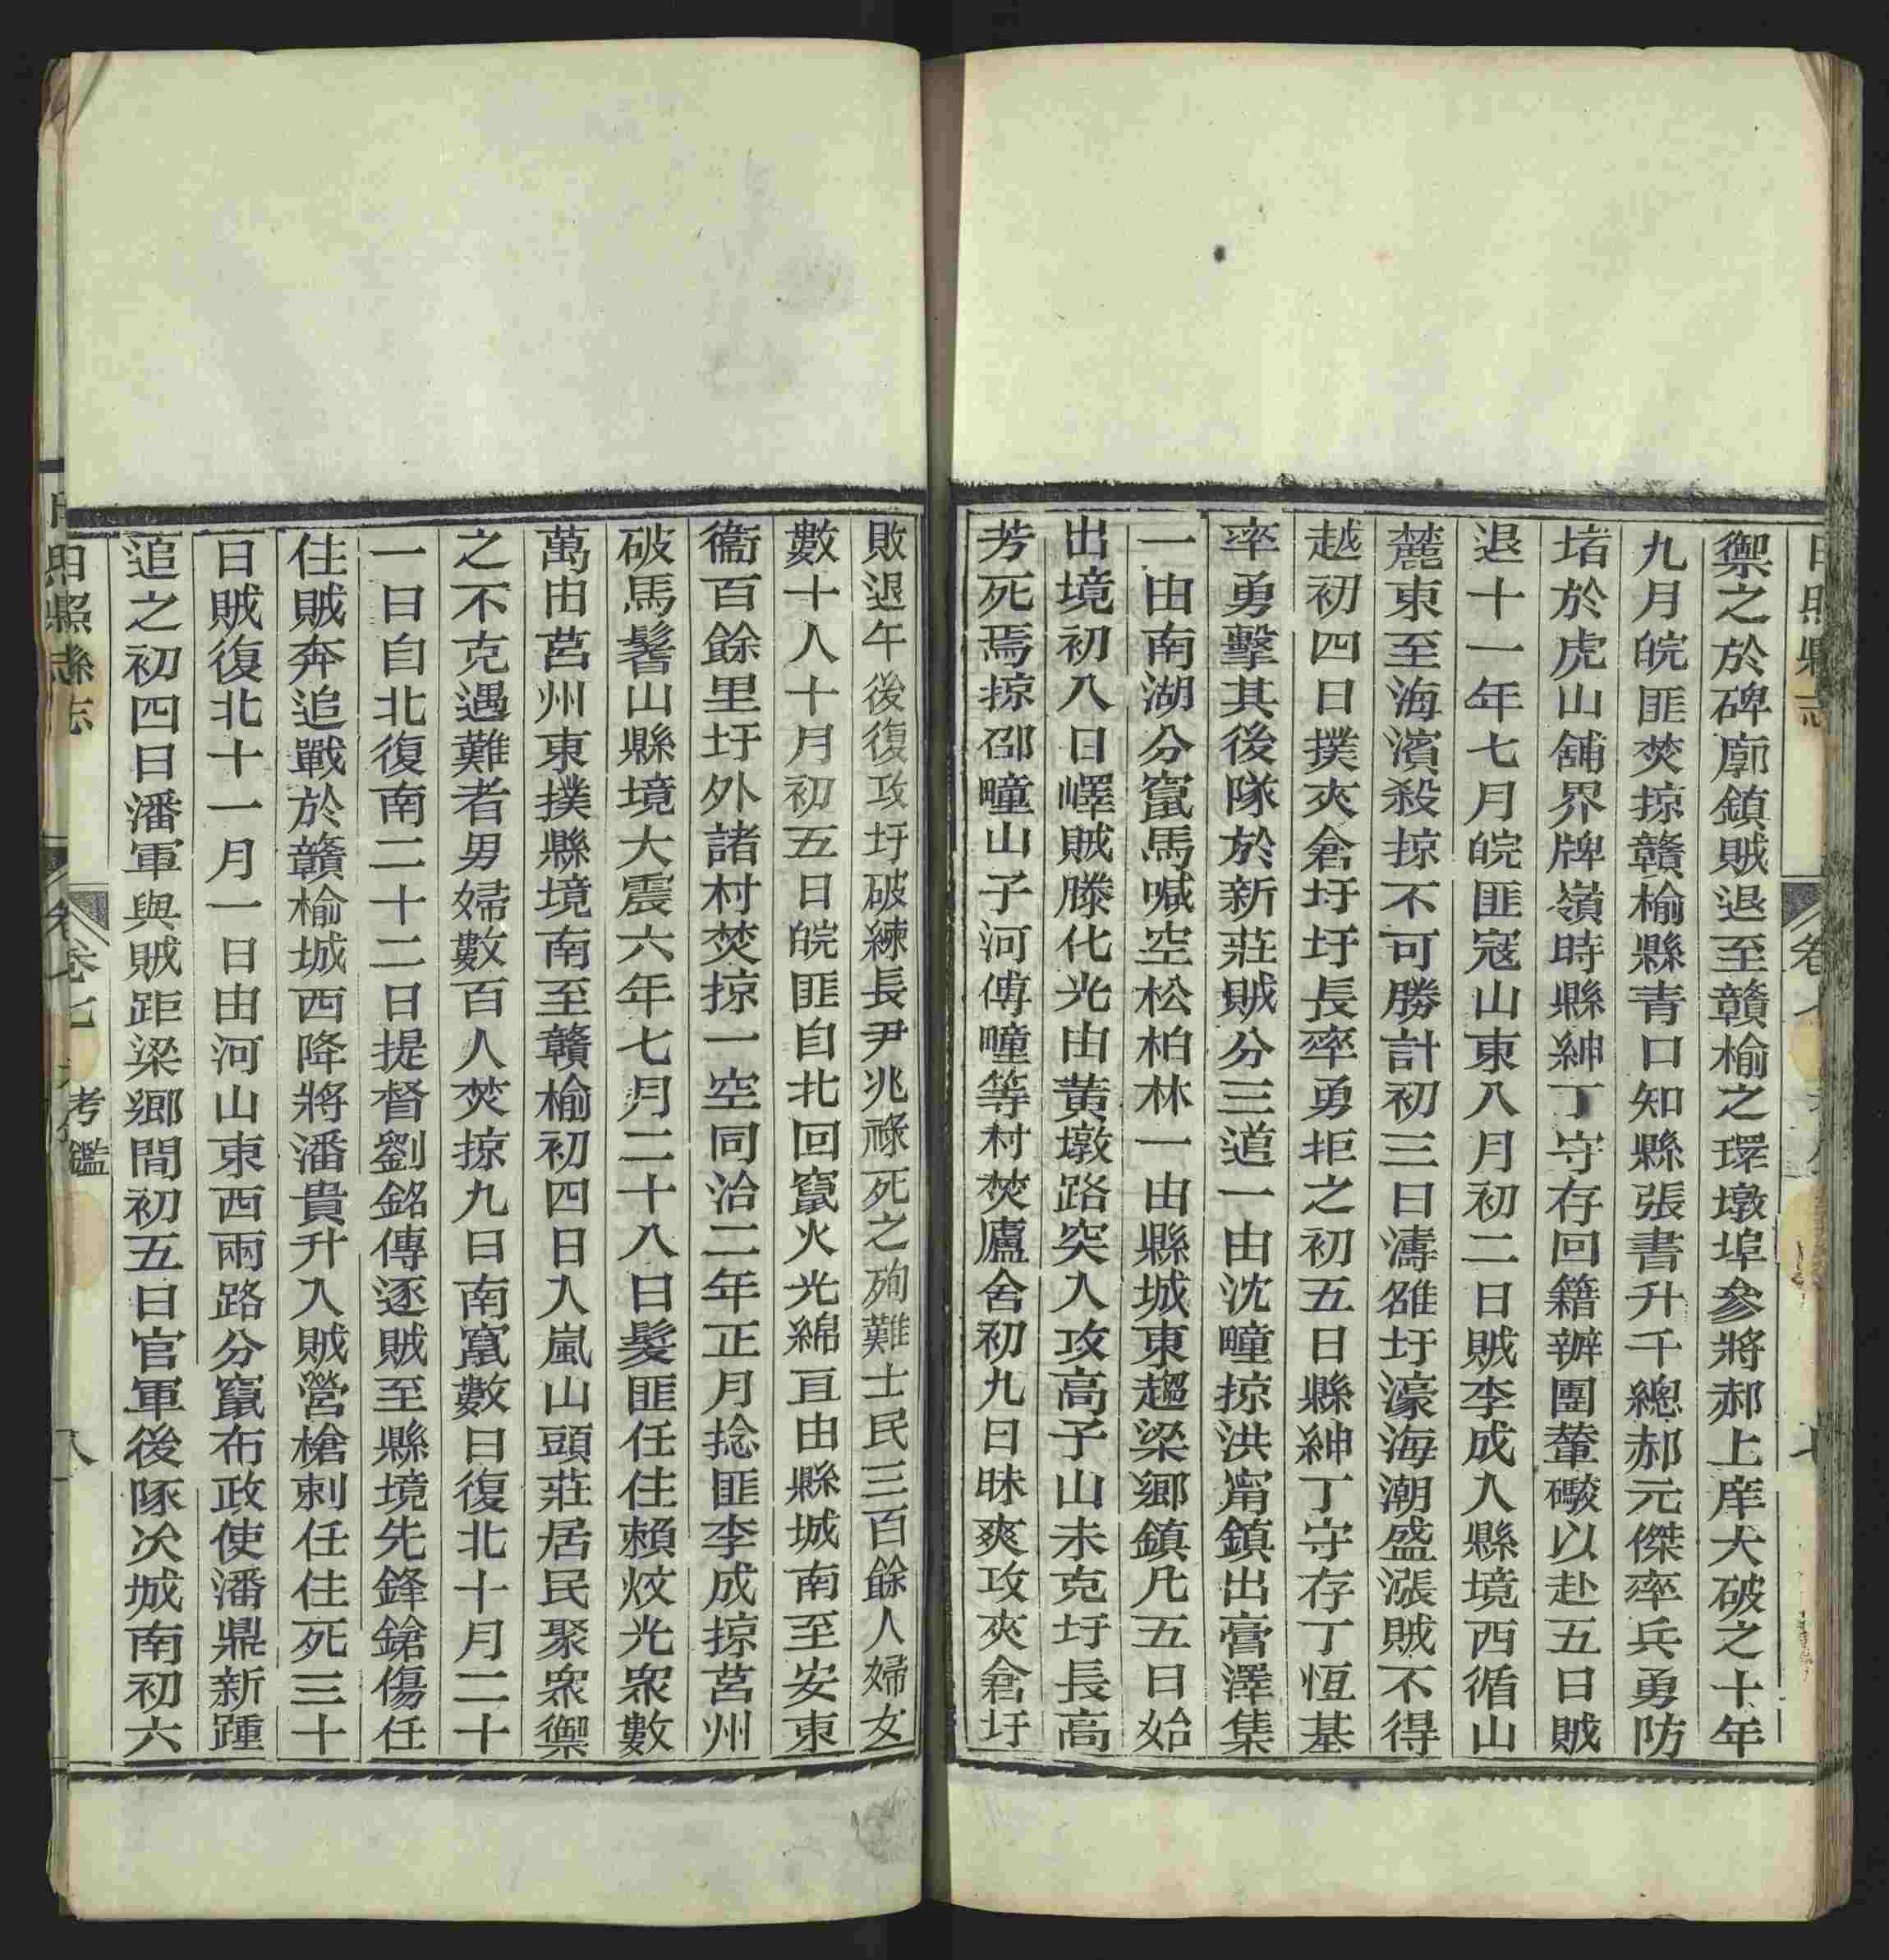 日照縣志
卷七
七
禦之於碑廓鎮賊退至贛榆之環墩埠參將郝上庠大破之十年
九月皖匪焚掠贛榆縣青口知縣張書升千總郝元傑率兵勇防
堵於虎山舖界牌嶺時縣紳丁守存回籍辦團輦礮以赴五日賊
退十一年七月皖匪寇山東八月初二日賊李成入縣境西循山
麓東至海濱殺掠不可勝計初三日濤雒圩濠海潮盛漲賊不得
越初四日撲夾倉圩圩長率勇拒之初五日縣紳丁守存丁恆基
率勇擊其後隊於新莊賊分三道一由沈疃掠洪甯鎮出膏澤集
一由南湖分竄馬喊空松柏林一由縣城東趨梁鄉鎮凡五日始
出境初八日嶧賊滕化光由黃墩路突入攻高子山未克圩長高
芳死焉掠邵疃山子河傅疃等村焚廬舍初九日昧爽攻夾倉圩
敗退午後復攻圩破練長尹兆祿死之殉難士民三百餘人婦女
數十人十月初五日皖匪自北回竄火光綿亘由縣城南至安東
衞百餘里圩外諸村焚掠一空同治二年正月捻匪李成掠莒州
破馬鬐山縣境大震六年七月二十八日髮匪任住賴炆光眾數
萬由莒州東撲縣境南至贛榆初四日入嵐山頭莊居民聚眾禦
之不克遇難者男婦數百人焚掠九日南竄數日復北十月二十
一日自北復南二十二日提督劉銘傳逐賊至縣境先鋒鎗傷任
住賊奔追戰於贛榆城西降將潘貴升入賊營槍刺任住死三十
日賊復北十一月一日由河山東西兩路分竄布政使潘鼎新踵
追之初四日潘軍與賊距梁鄉間初五日官軍後隊次城南初六
日照縣志
卷七 考鑑
八